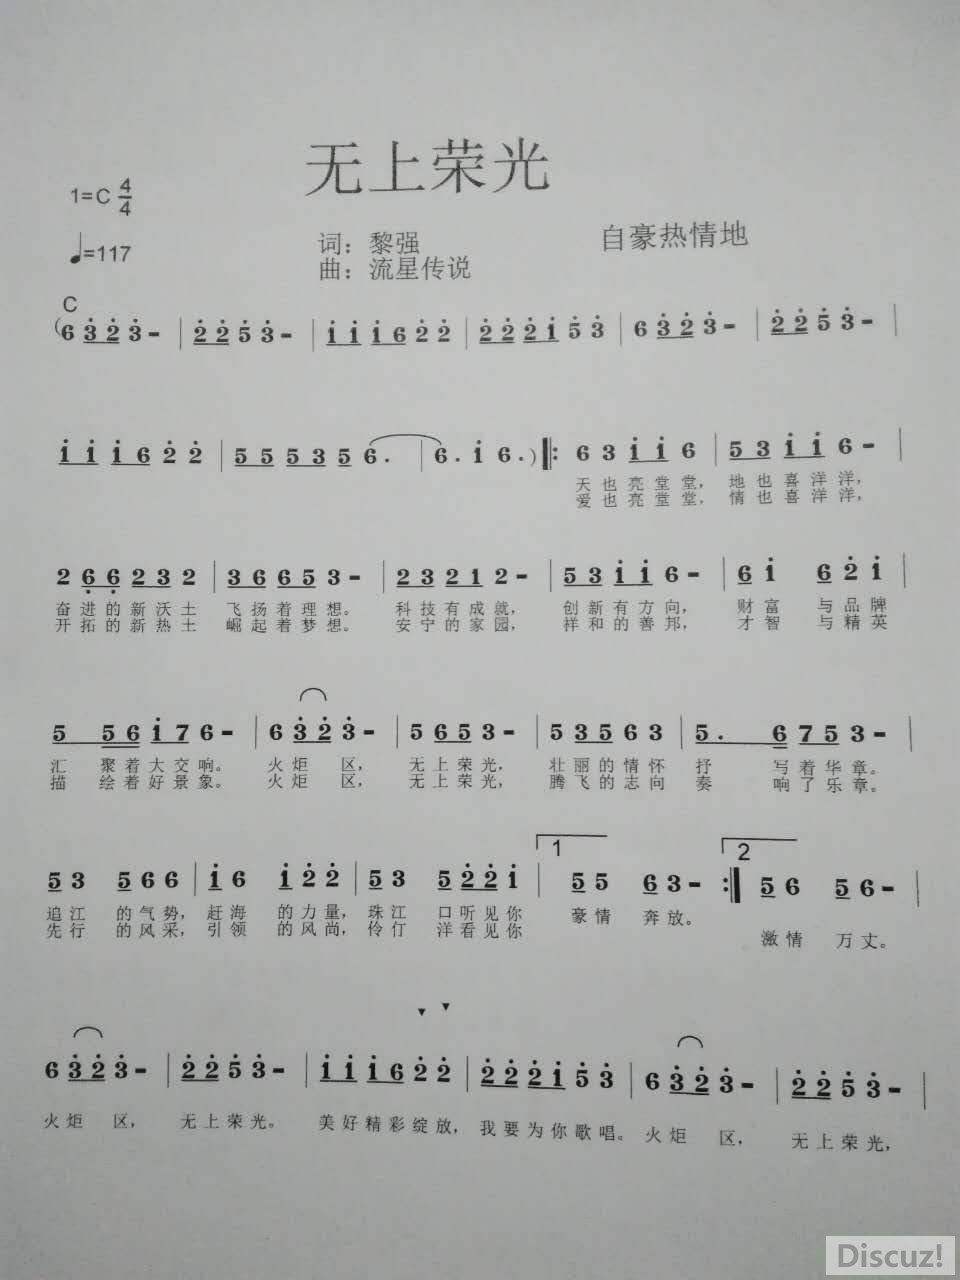 无上荣光
1=C 4/4
♩=117
词：黎强
自豪热情地
曲：流星传说
C
(6 3 2 3 - | 2 2 5 3 - | 1 1 1 6 2 2 | 2 2 2 1 5 3 | 6 3 2 3 - | 2 2 5 3 - |
1 1 1 6 2 2 | 5 5 5 3 5 6. | 6. 1 6.) ‖: 6 3 1 1 6 | 5 3 1 1 6 - |
天也亮堂堂，地也喜洋洋，
爱也亮堂堂，情也喜洋洋，
2 6 6 2 3 2 | 3 6 6 5 3 - | 2 3 2 1 2 - | 5 3 1 1 6 - | 6 1 6 2 1 |
奋进的新沃土 飞扬着理想。科技有成就，创新有方向，财富 与品牌
开拓的新热土 崛起着梦想。安宁的家园，祥和的善邦，才智 与精英
5 5 6 1 7 6 - | 6 3 2 3 - | 5 6 5 3 - | 5 3 5 6 3 | 5. 6 7 5 3 - |
汇 聚着大交响。火炬 区，无上荣光，壮丽的情怀 抒 写着华章。
描 绘着好景象。火炬 区，无上荣光，腾飞的志向 奏 响了乐章。
1 2
5 3 5 6 6 | 1 6 1 2 2 | 5 3 5 2 2 1 | 5 5 6 3 - :‖ 5 6 5 6 - |
追江 的气势，赶海 的力量，珠江 口听见你 豪情 奔放。
先行 的风采，引领 的风尚，伶仃 洋看见你 激情 万丈。
6 3 2 3 - | 2 2 5 3 - | 1 1 1 6 2 2 | 2 2 2 1 5 3 | 6 3 2 3 - | 2 2 5 3 - |
火炬 区，无上荣光。美好精彩绽放，我要为你歌唱。火炬 区，无上荣光，
Discuz!